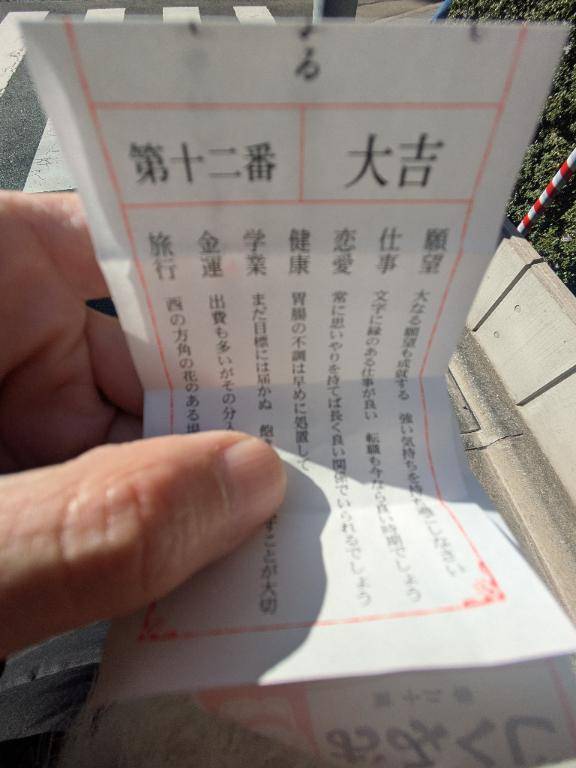 る
大吉
第十二番
願望 大なる願望も成就する 強い気持ちを持ち過ごしなさい
仕事 文字に縁のある仕事が良い 転職も今なら良い時期でしょう
恋愛 常に思いやりを持てば長く良い関係でいられるでしょう
健康 胃腸の不調は早めに処置して
学業 まだ目標には届かぬ ことが大切
金運 出費も多いがその分入
旅行 西の方角の花のある場